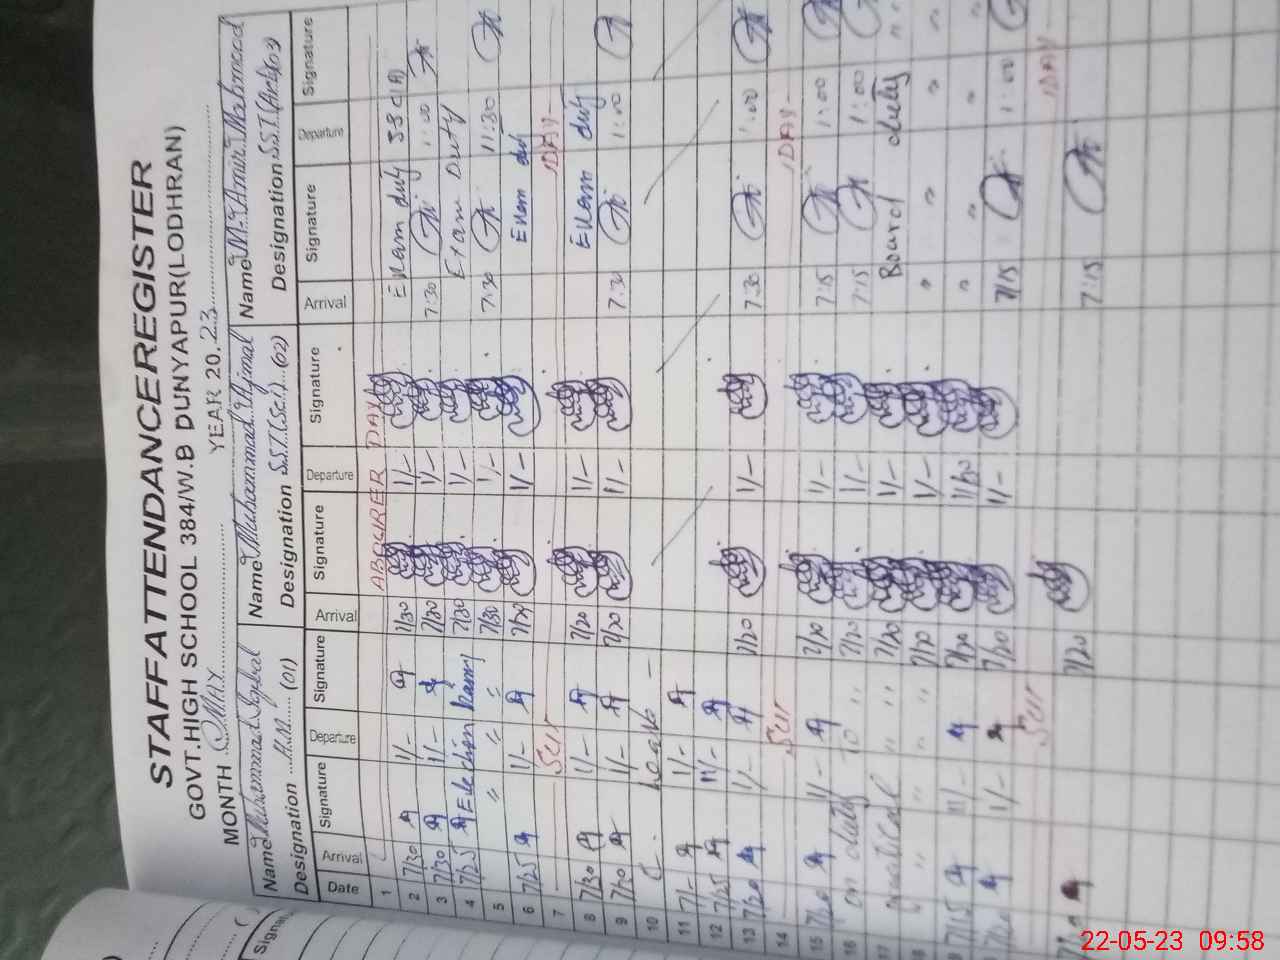 STAFF ATTENDANCE REGISTER
GOVT.HIGH SCHOOL 384/W.B DUNYAPUR(LODHRAN)
MONTH MAY YEAR 2023
Name Muhammad Iqbal Name Muhammad Ajmal Name M. Amir Mahmood
Designation H.M (01) Designation S.S.T.(Sci) (02) Designation S.S.T.(Arts)(03)
Date Arrival Signature Departure Signature Arrival Signature Departure Signature Arrival Signature Departure Signature
1 DAY
2 7/30 1/- 7/30 1/- Exam duty SSC(A)
3 7/30 1/- 7/30 1/- 7:30 1:00
4 7/25 Election 7/30 1/- Exam Duty
5 " " " 7/30 1/- 7:30 1:30
6 7/25 1/- 7/20 1/- Exam
7 SUN DAY
8 7/30 1/- 7/20 1/- Exam duty
9 7/20 1/- 7/20 1/- 7:30 1:00
10
11 7/- 1/-
12 7/25 11/-
13 7/20 1/- 7/20 1/- 7:30 1:00
14 SUN DAY
15 7/20 1/- 7/20 1/- 7:15 1:00
16 on duty 7/20 1/- 7:15 1:00
17 practical " " 7/20 1/- Board duty "
" " " 7/20 1/- " " " "
7/15 11/- 7/20 11/30 " " " "
1/- 7/20 1/- 7/15 1:00
SUN DAY
7/20 7:15
Signatu
22-05-23 09:58